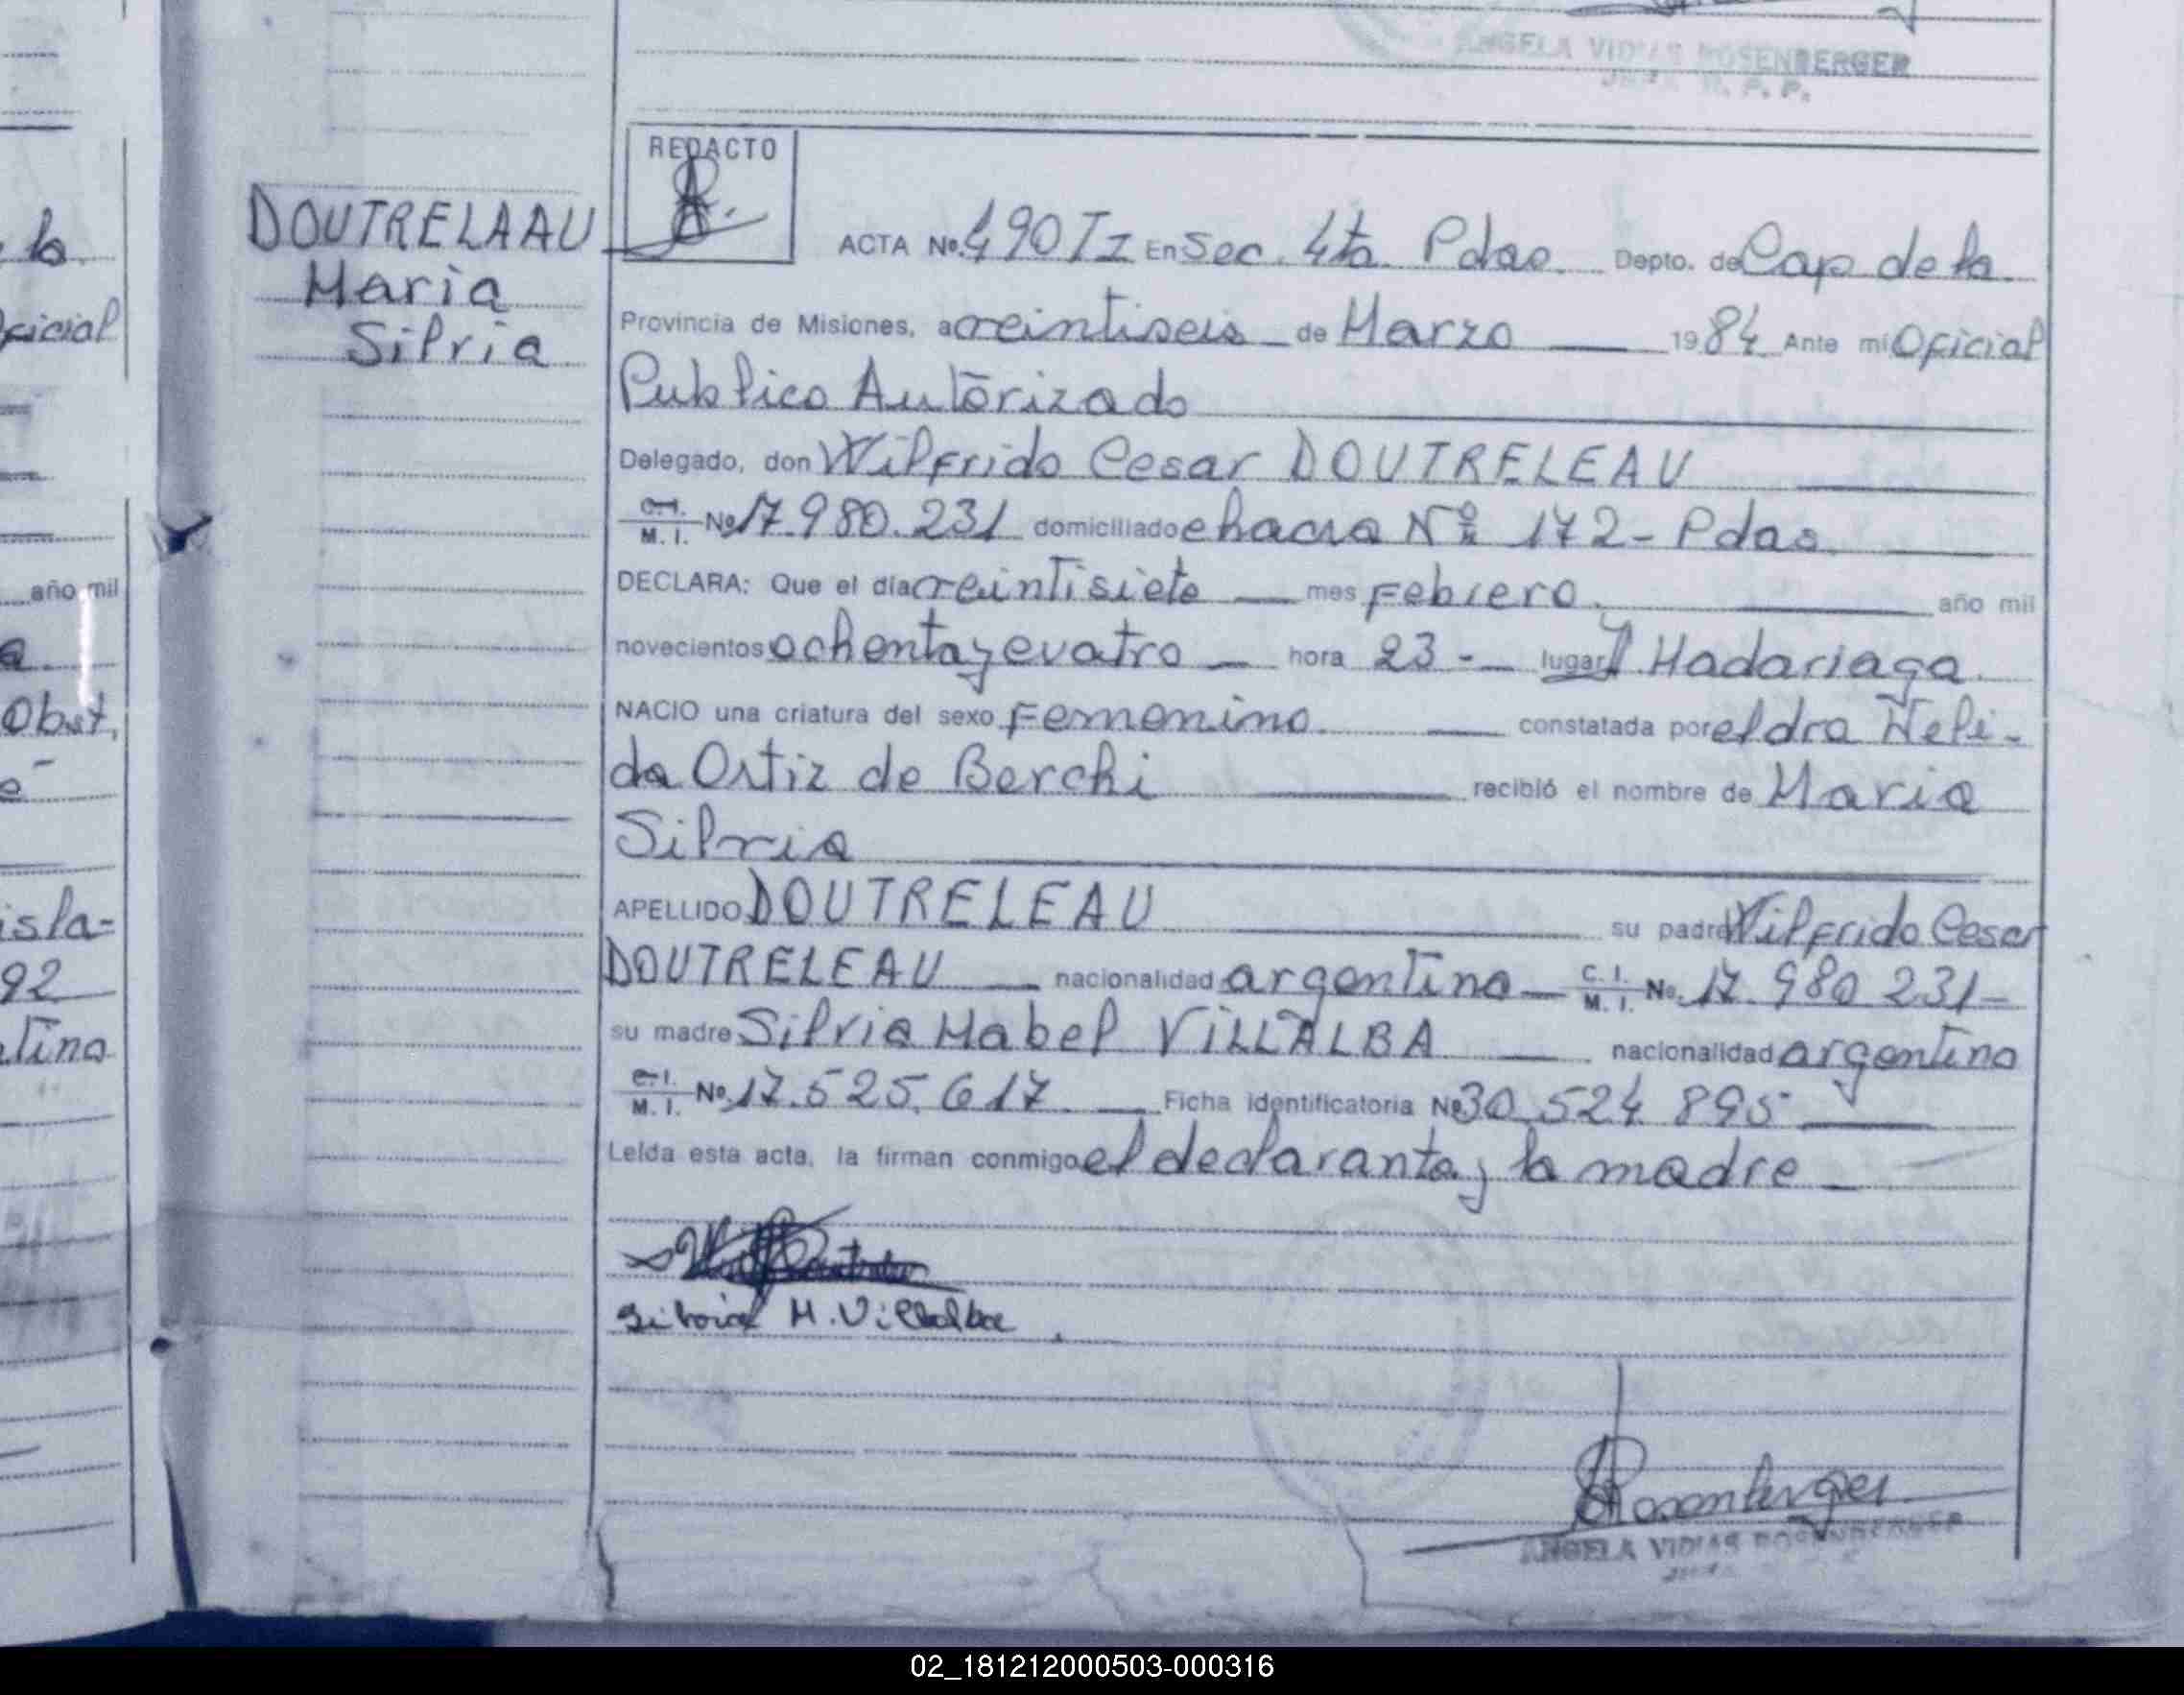 ANGELA VIDIAS ROSENBERGER
R. P. P.
REDACTO
DOUTRELAAU
Maria
Silvia
ACTA No. 490 TI En Sec. 4ta. Pdas. Depto. de Cap de la
Provincia de Misiones, a veintiseis de Marzo 1984 Ante mi Oficial
Publico Autorizado
Delegado, don Wilfrido Cesar DOUTRELEAU
C.I. M. I. No 17.980.231 domiciliado chacra Nº 172 - Pdas.
DECLARA: Que el día veintisiete mes Febrero. año mil
novecientos ochenta y cuatro hora 23 - lugar H. Madariaga.
NACIO una criatura del sexo Femenino. constatada por el dra Neli-
da Ortiz de Berchi recibió el nombre de Maria
Silvia
APELLIDO DOUTRELEAU su padre Wilfrido Cesar
DOUTRELEAU nacionalidad argentino C. I. M. I. No. 17.980 231-
su madre Silvia Mabel ViLLALBA nacionalidad argentino
C.I. M. I. No. 17.525.617. Ficha identificatoria No 30.524 895
Leída esta acta, la firman conmigo el declarante y la madre
Silvia M. Villalba
Rosenberger
ANGELA VIDIAS ROSENBERGER
la
Oficial
año mil
a
Obst,
e
isla-
92
tino
02_181212000503-000316